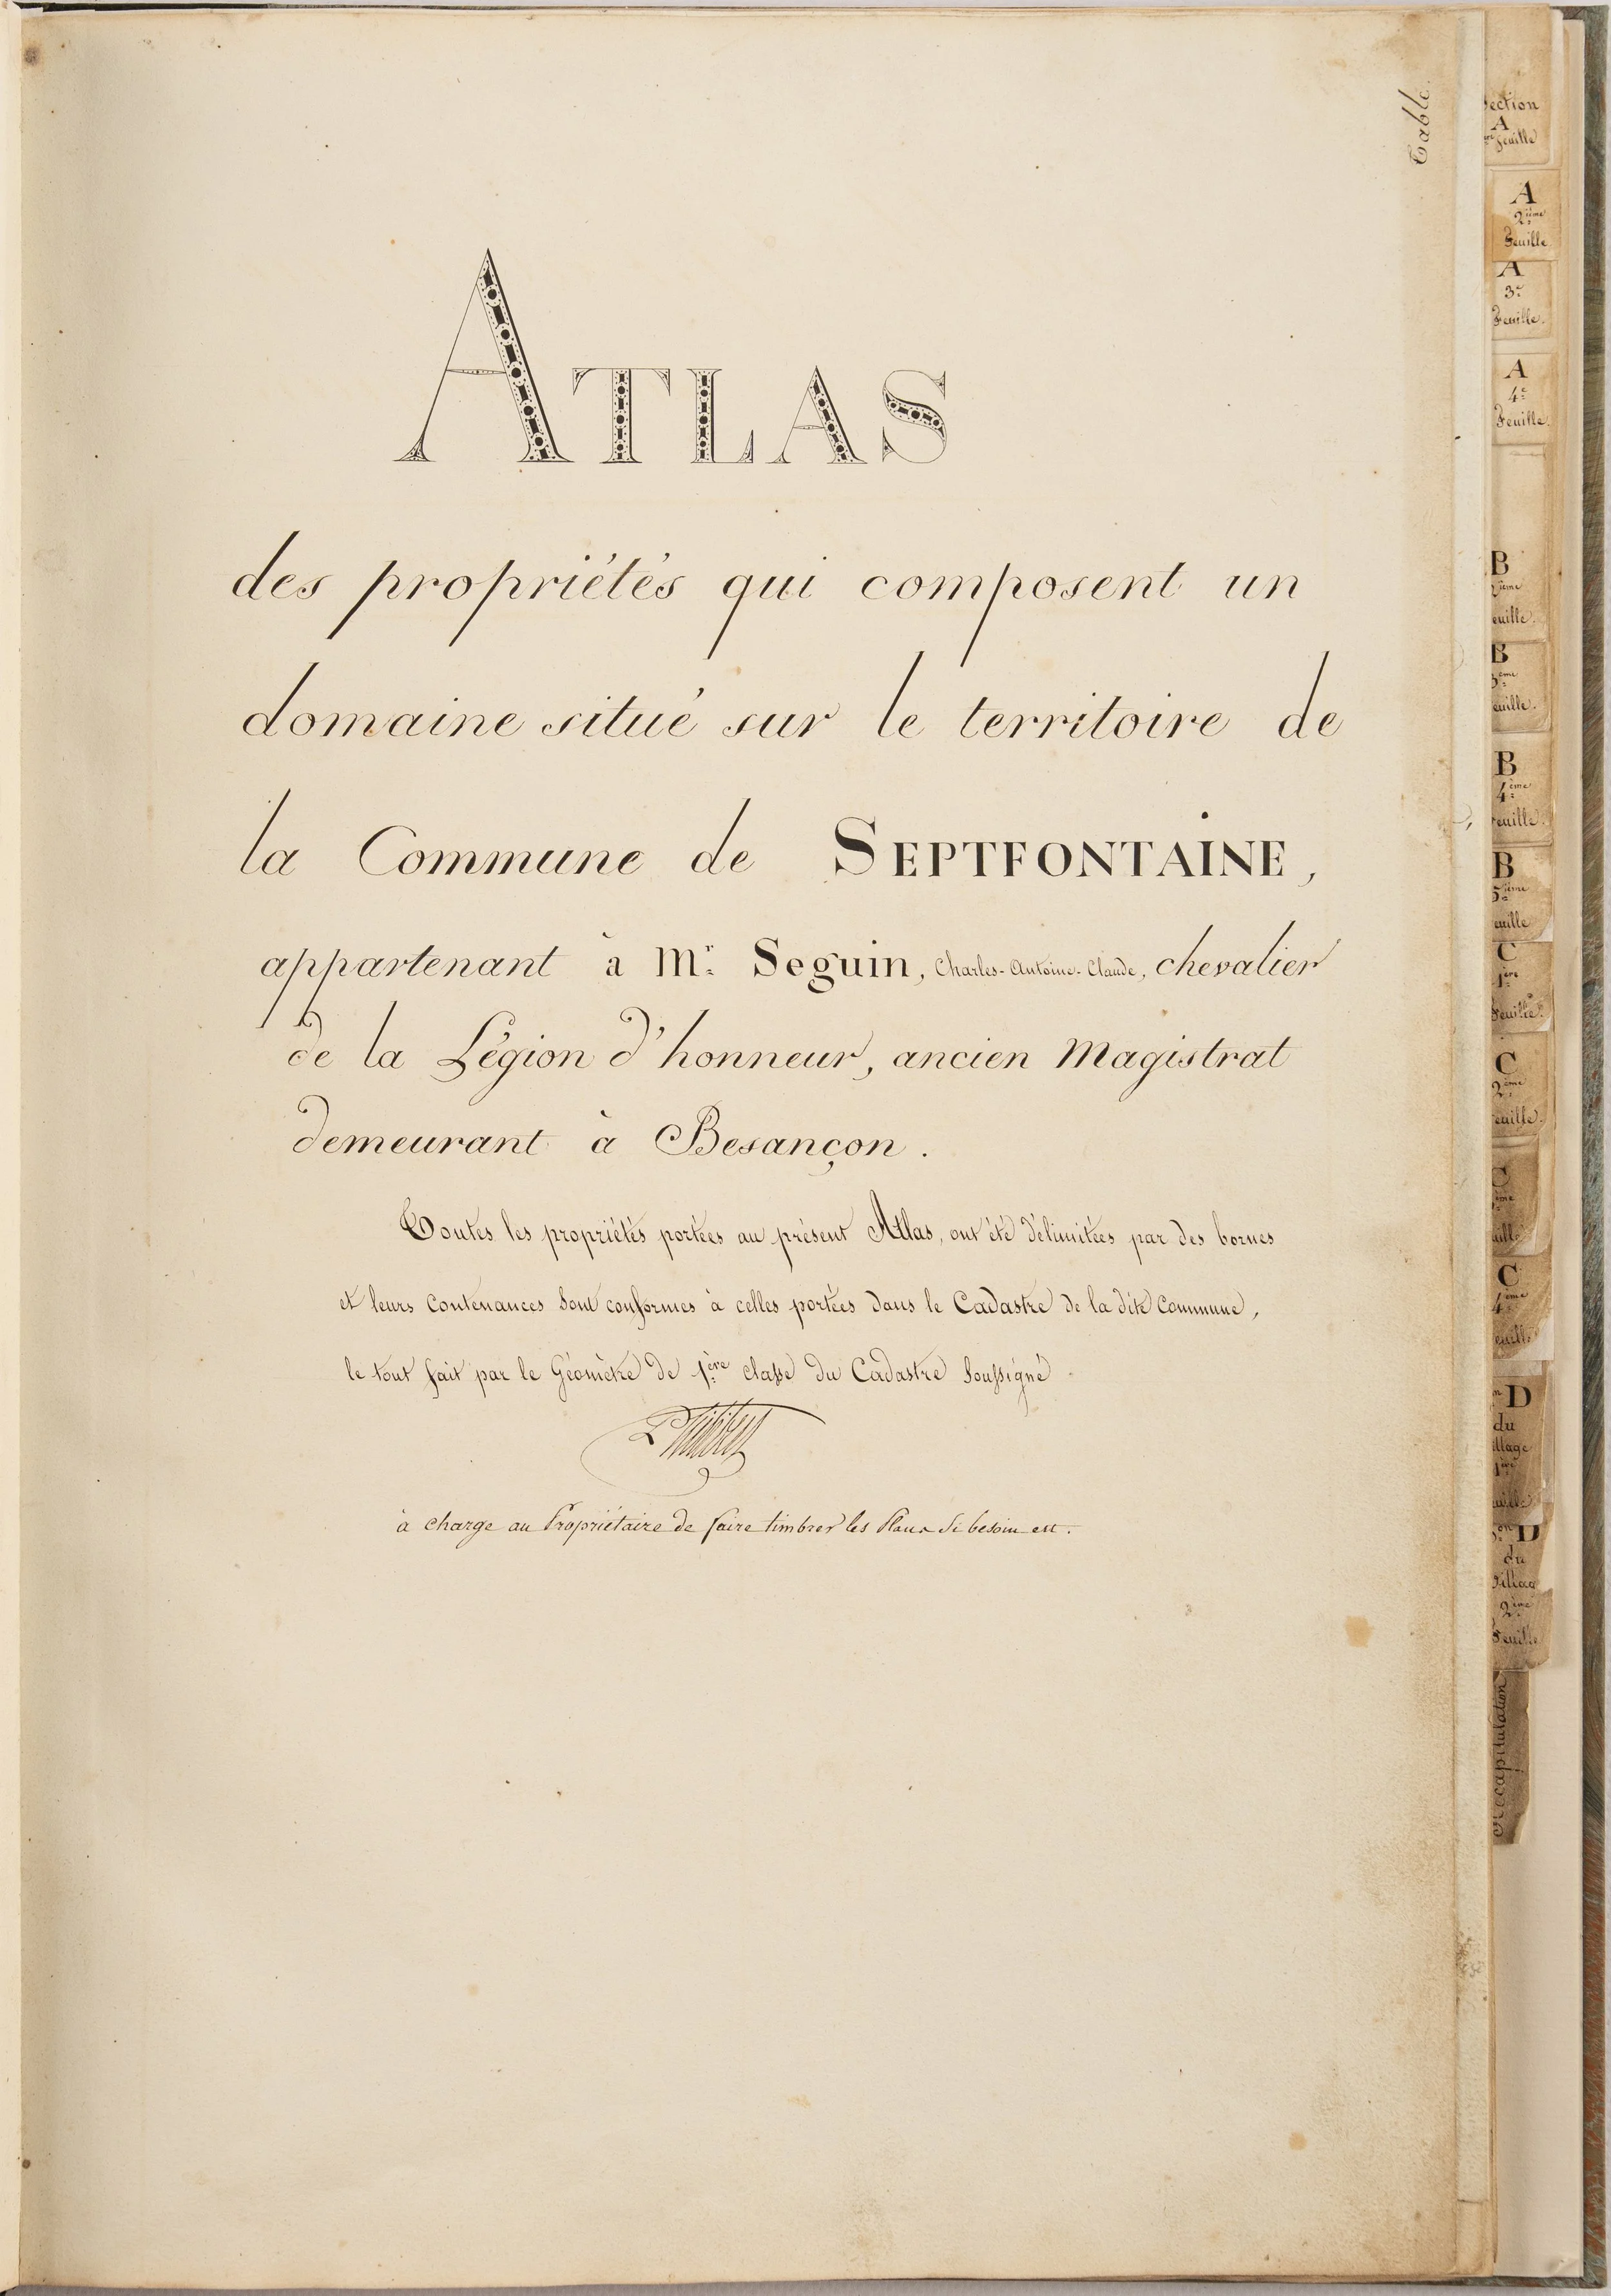 ATLAS
des propriétés qui composent un
domaine situé sur le territoire de
la Commune de SEPTFONTAINE,
appartenant à Mr. Seguin, Charles-Antoine-Claude, chevalier
de la Légion d'honneur, ancien Magistrat
demeurant à Besançon.
Toutes les propriétés portées au présent Atlas, ont été délimitées par des bornes
et leurs Contenances sont conformes à celles portées dans le Cadastre de la dite Commune,
le tout fait par le Géomètre de 1ère classe du Cadastre Soussigné
à charge au Propriétaire de faire timbrer les Plans si besoin est.
Table.
Section
A
1ère feuille
A
2ième
Feuille
A
3e
Feuille.
A
4e
Feuille.
B
2ième
euille.
B
3ème
euille.
B
4ème
euille.
B
5ième
euille
C
1ère
Feuille.
C
2ème
euille.
C
ème
uille
C
4ème
euille
D
du
illage
1ère
uille
on D
du
Village
2ème
Feuille
Récapitulation